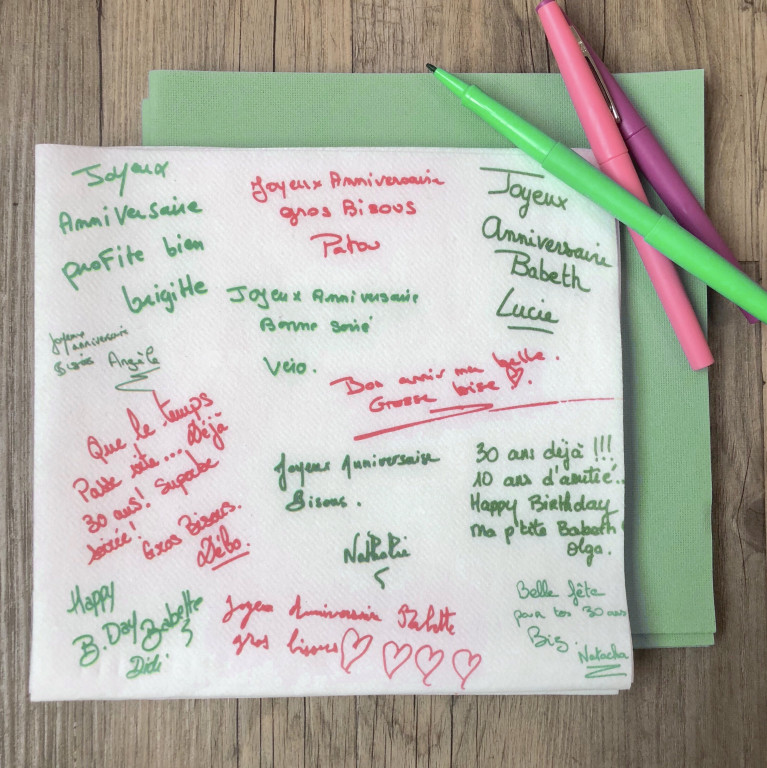 Joyeux
Anniversaire
profite bien
brigitte
Joyeux Anniversaire
gros Bisous
Patou
Joyeux
Anniversaire
Babeth
Lucie
Joyeux Anniversaire
Bonne soirée
Véro.
Joyeux
anniversaire
Bisés Angèle
Bon anniv ma belle.
Grosse bise
Que le temps
Passe vite... Déjà
30 ans! Superbe
soirée!
Gros Bisous.
Débo.
Joyeux Anniversaire
Bisous.
Nathalie
30 ans déjà !!!
10 ans d'amitié..
Happy Birthday
Ma p'tite Babeth!
Olga.
Happy
B.Day Babette
Didi
Joyeux Anniversaire Babette
gros bisous
Belle fête
pour tes 30 ans
Biz.
Natacha